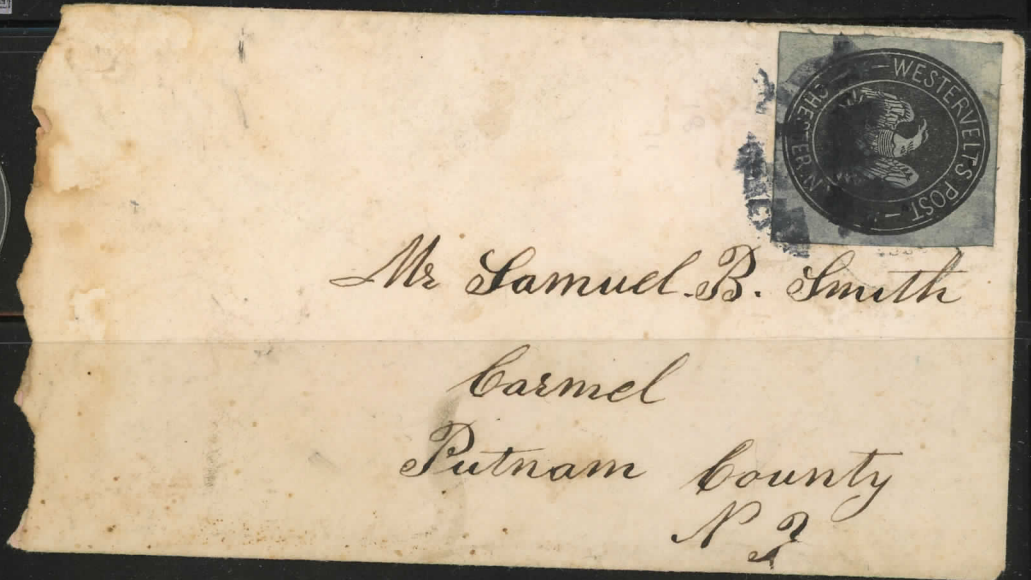 WESTERVELTS POST
CHESTER N
Mr Samuel. B. Smith
Carmel
Putnam County
N Y